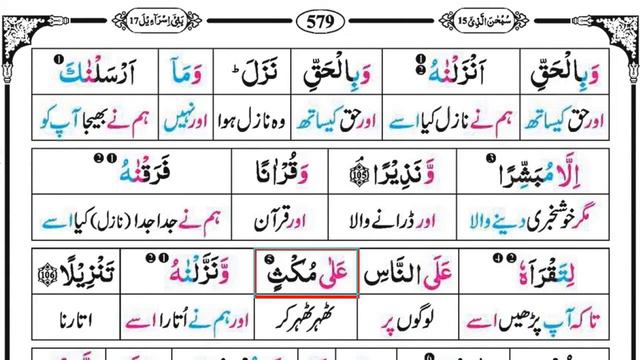 سُبْحٰنَ الَّذِیْ 15 579 بَنِیْ اِسْرَآءِیْل 17
وَبِالْحَقِّ اَنْزَلْنٰهُ وَبِالْحَقِّ نَزَلَ ؕ وَمَاۤ اَرْسَلْنٰكَ
اور حق کیساتھ ہم نے نازل کیا اسے اور حق کیساتھ وہ نازل ہوا اور نہیں ہم نے بھیجا آپ کو
اِلَّا مُبَشِّرًا وَّنَذِیْرًا ۝105 وَقُرْاٰنًا فَرَقْنٰهُ
مگر خوشخبری دینے والا اور ڈرانے والا اور قرآن ہم نے جدا جدا (نازل) کیا اسے
لِتَقْرَاَهٗ عَلَی النَّاسِ عَلٰی مُكْثٍ وَّنَزَّلْنٰهُ تَنْزِیْلًا ۝106
تاکہ آپ پڑھیں اسے لوگوں پر ٹھہر ٹھہر کر اور ہم نے اُتارا اسے اتارنا